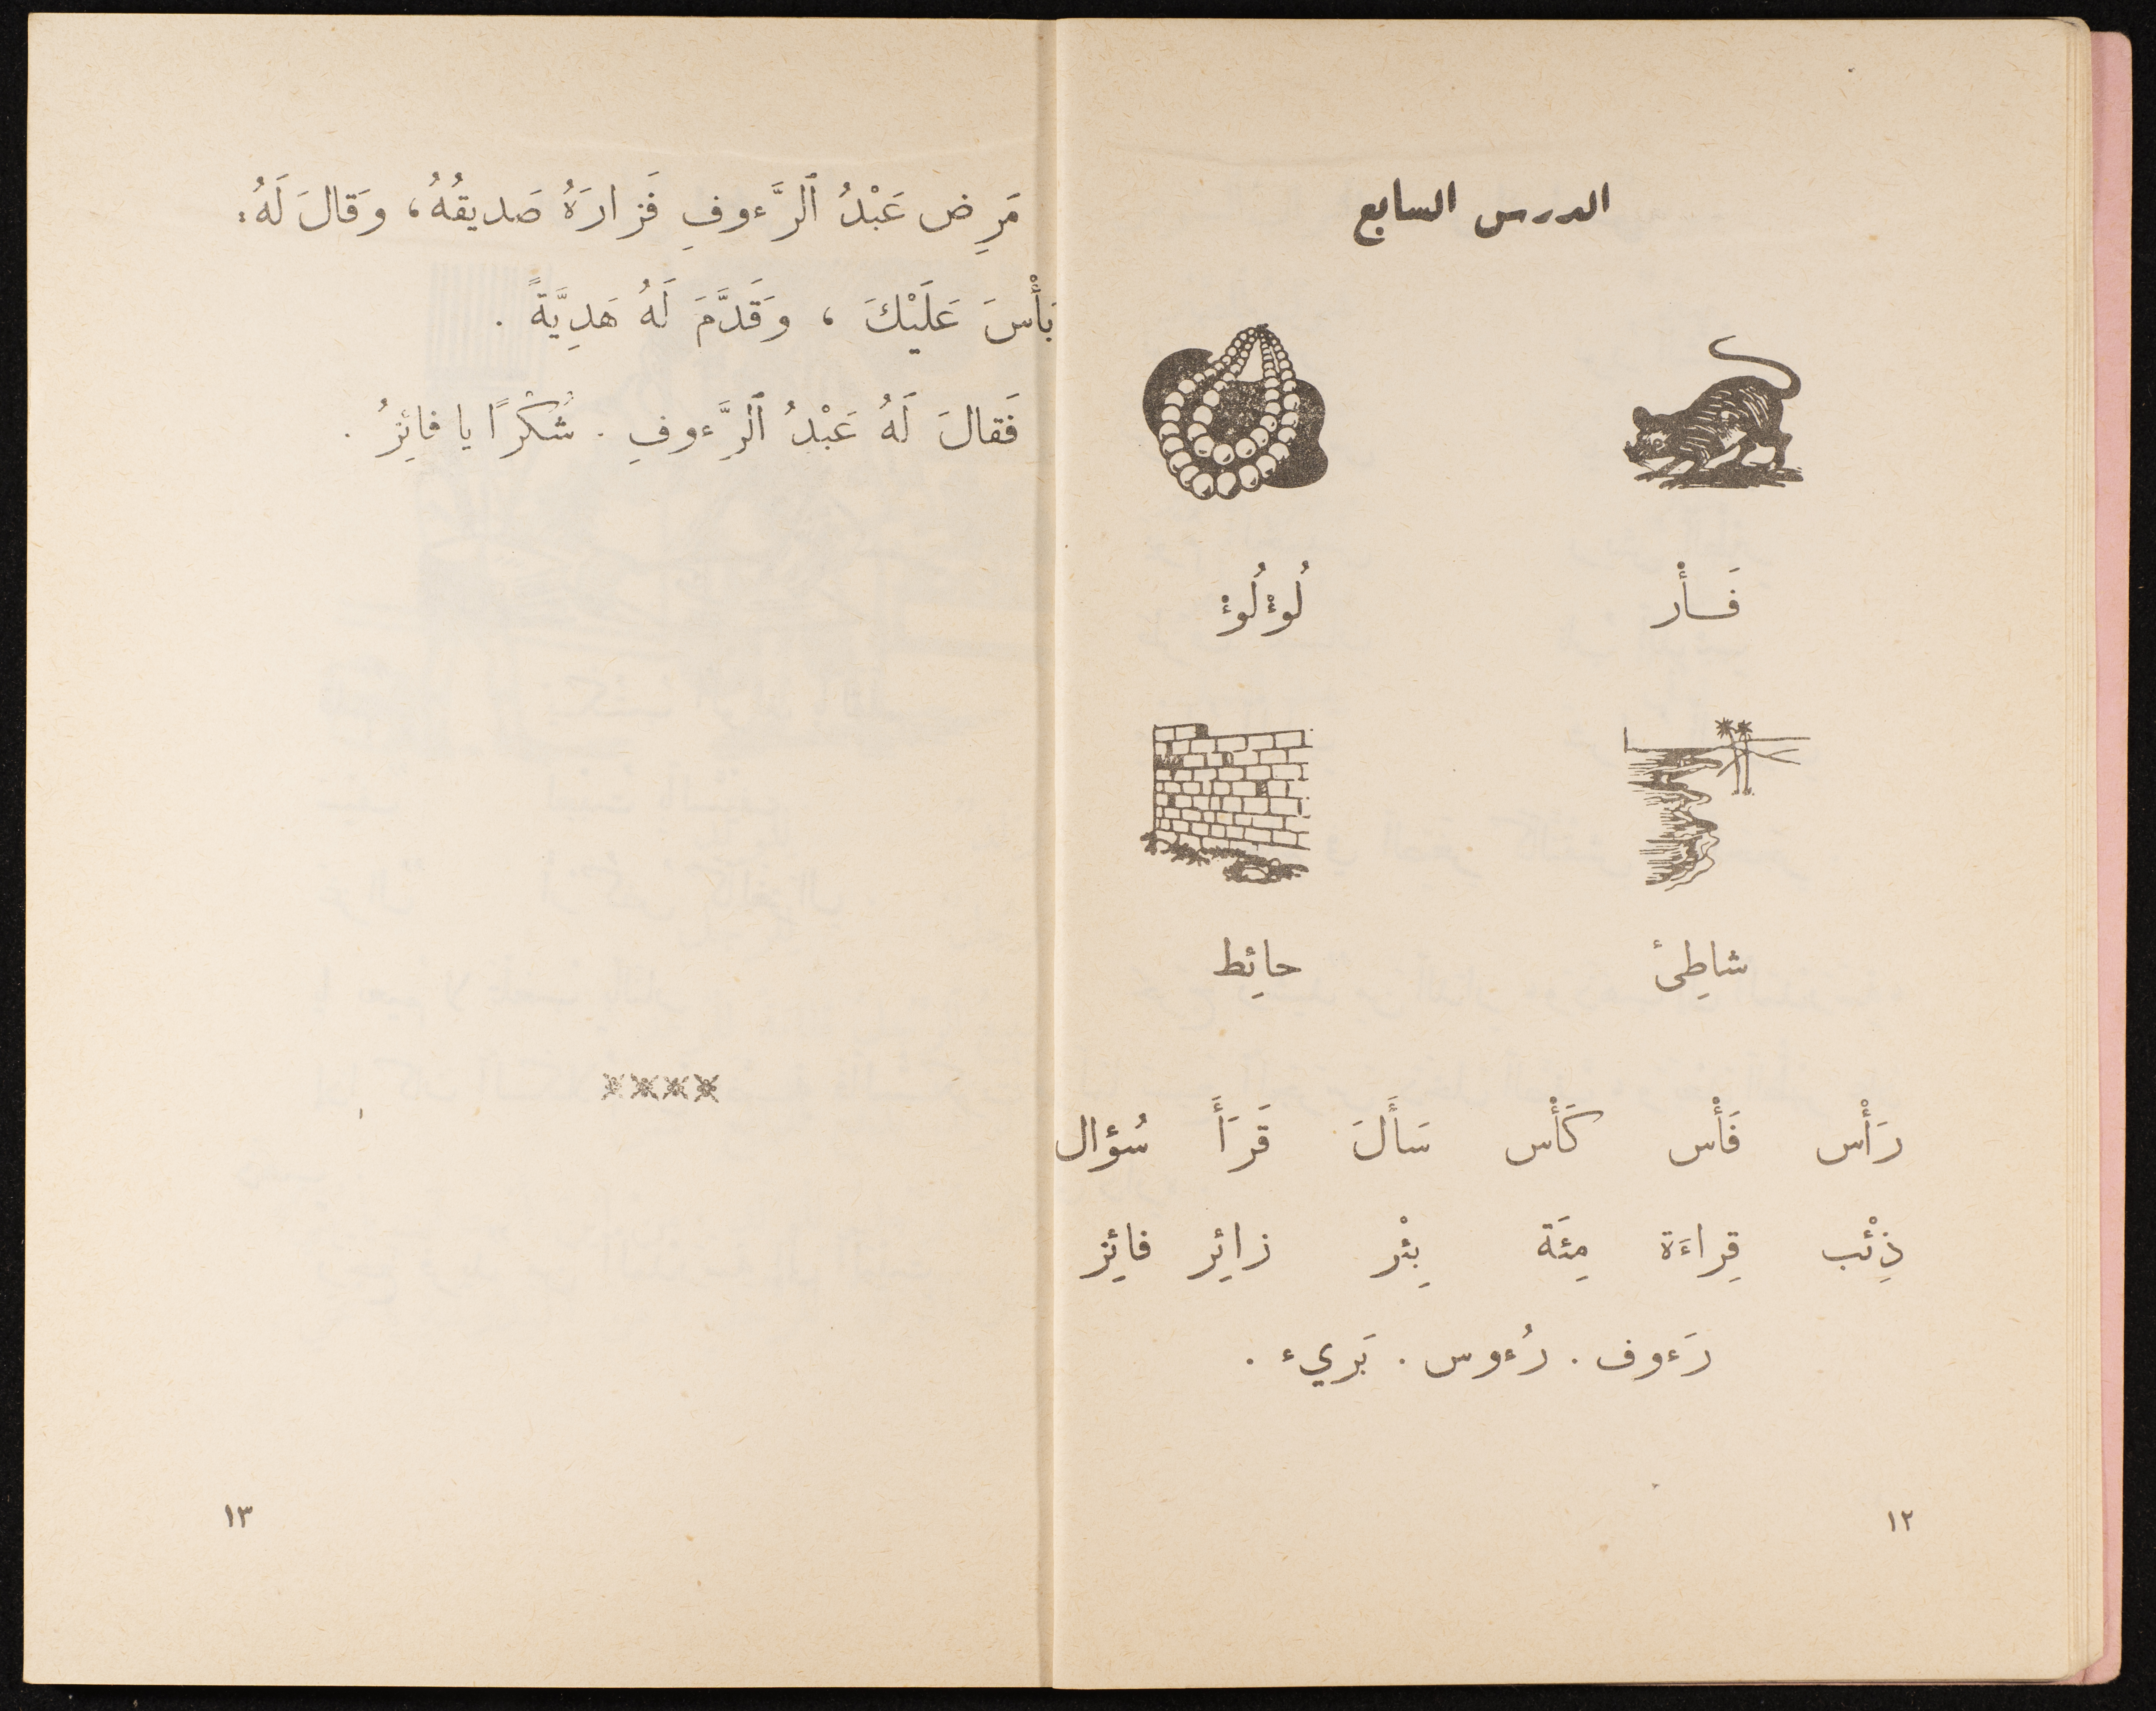 الدرس السابع
فَـأْر لُؤْلُؤْ
شاطِئ حائِط
رَأْس فَأْس كَأْس سَأَلَ قَرَأَ سُؤال
ذِئْب قِراءَة مِئَة بِئْر زائِر فائِز
رَءوف . رُءوس . بَريء .
١٢
مَرِض عَبْدُ ٱلرَّءوفِ فَزارَهُ صَديقُهُ، وَقالَ لَهُ:
بَأْسَ عَلَيْكَ ، وَقَدَّمَ لَهُ هَدِيَّةً .
فَقالَ لَهُ عَبْدُ ٱلرَّءوفِ . شُكْرًا يا فائِزُ .
××××
١٣